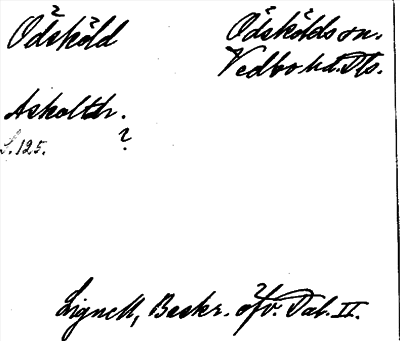 Ödsköld
Ödskölds sn.
Vedbo hd. Ds.
Askoltdr.
?
L. 125.
Lignell, Beskr. öfv. Dal. II.